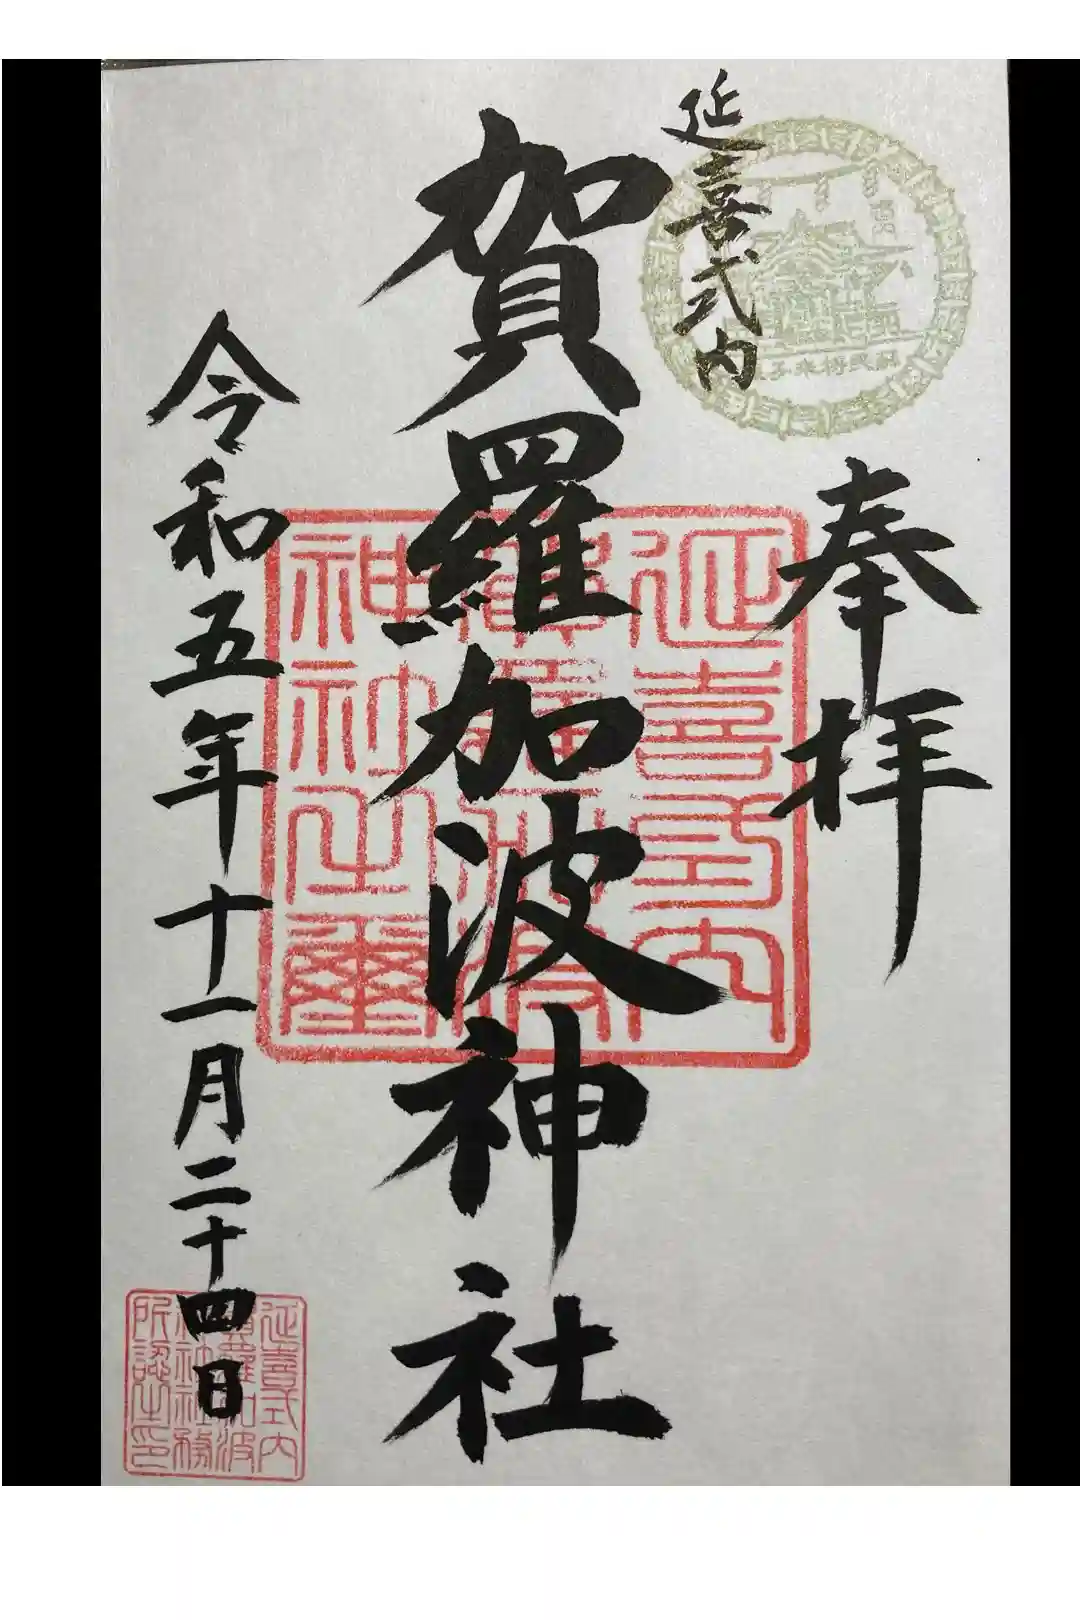 延喜式内
奉拝
賀羅加波神社
令和五年十一月二十四日
延喜式内
神社之璽
延喜式内
賀羅加波
神社社務
所認之印